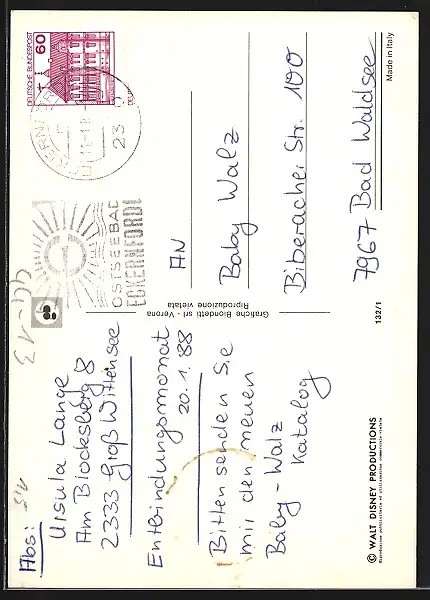 Abs:
Ursula Lange
Am Blocksberg 8
2333 Groß Wittensee
Entbindungsmonat
20.1.88
Bitten senden Sie
mir den neuen
Baby-Walz
Katalog
© WALT DISNEY PRODUCTIONS
Grafiche Biondetti srl - Verona
Riproduzione vietata
132/1
DEUTSCHE BUNDESPOST
60
23
OSTSEEBAD
ECKERNFÖRDE
AN
Baby Walz
Biberacher Str. 100
7967 Bad Waldsee
Made in Italy